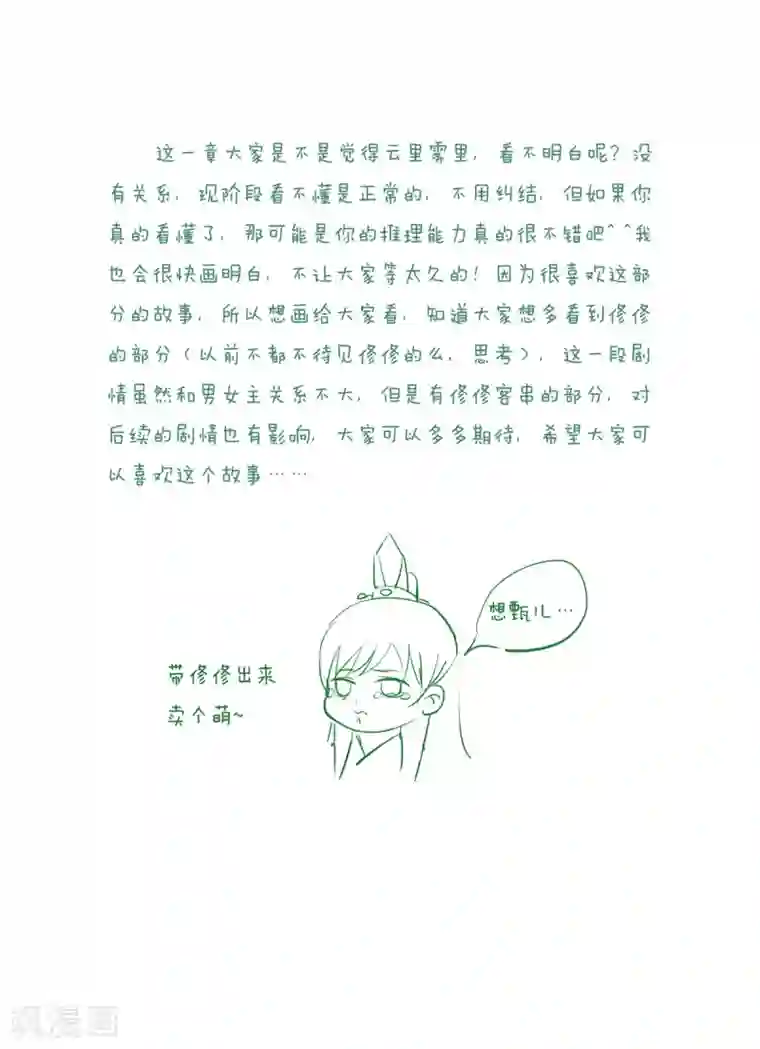 这一章大家是不是觉得云里雾里，看不明白呢？没
有关系，现阶段看不懂是正常的，不用纠结，但如果你
真的看懂了，那可能是你的推理能力真的很不错吧^ ^我
也会很快画明白，不让大家等太久的！因为很喜欢这部
分的故事，所以想画给大家看，知道大家想多看到修修
的部分（以前不都不待见修修的么，思考），这一段剧
情虽然和男女主关系不大，但是有修修客串的部分，对
后续的剧情也有影响，大家可以多多期待，希望大家可
以喜欢这个故事……
想甄儿…
带修修出来
卖个萌~
飒漫画